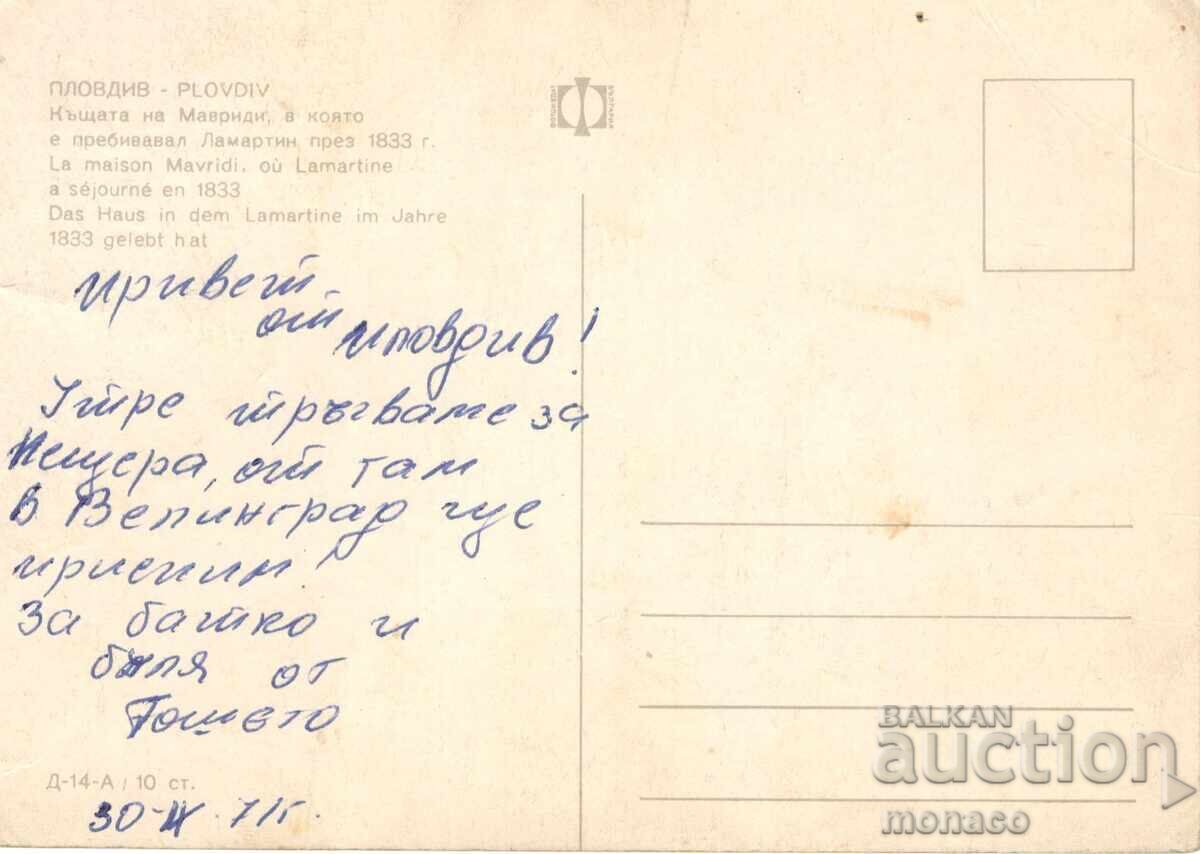 ПЛОВДИВ - PLOVDIV
Къщата на Мавриди, в която
е пребивавал Ламартин през 1833 г.
La maison Mavridi, où Lamartine
a séjourné en 1833
Das Haus in dem Lamartine im Jahre
1833 gelebt hat
Привет
от Пловдив!
Утре тръгваме за
Пещера, от там
в Велинград где
приспим!
За батко и
буля от
Гошето
Д-14-А / 10 ст.
30-IX 71г.
БЪЛГАРИЯ
BALKAN
auction
monaco